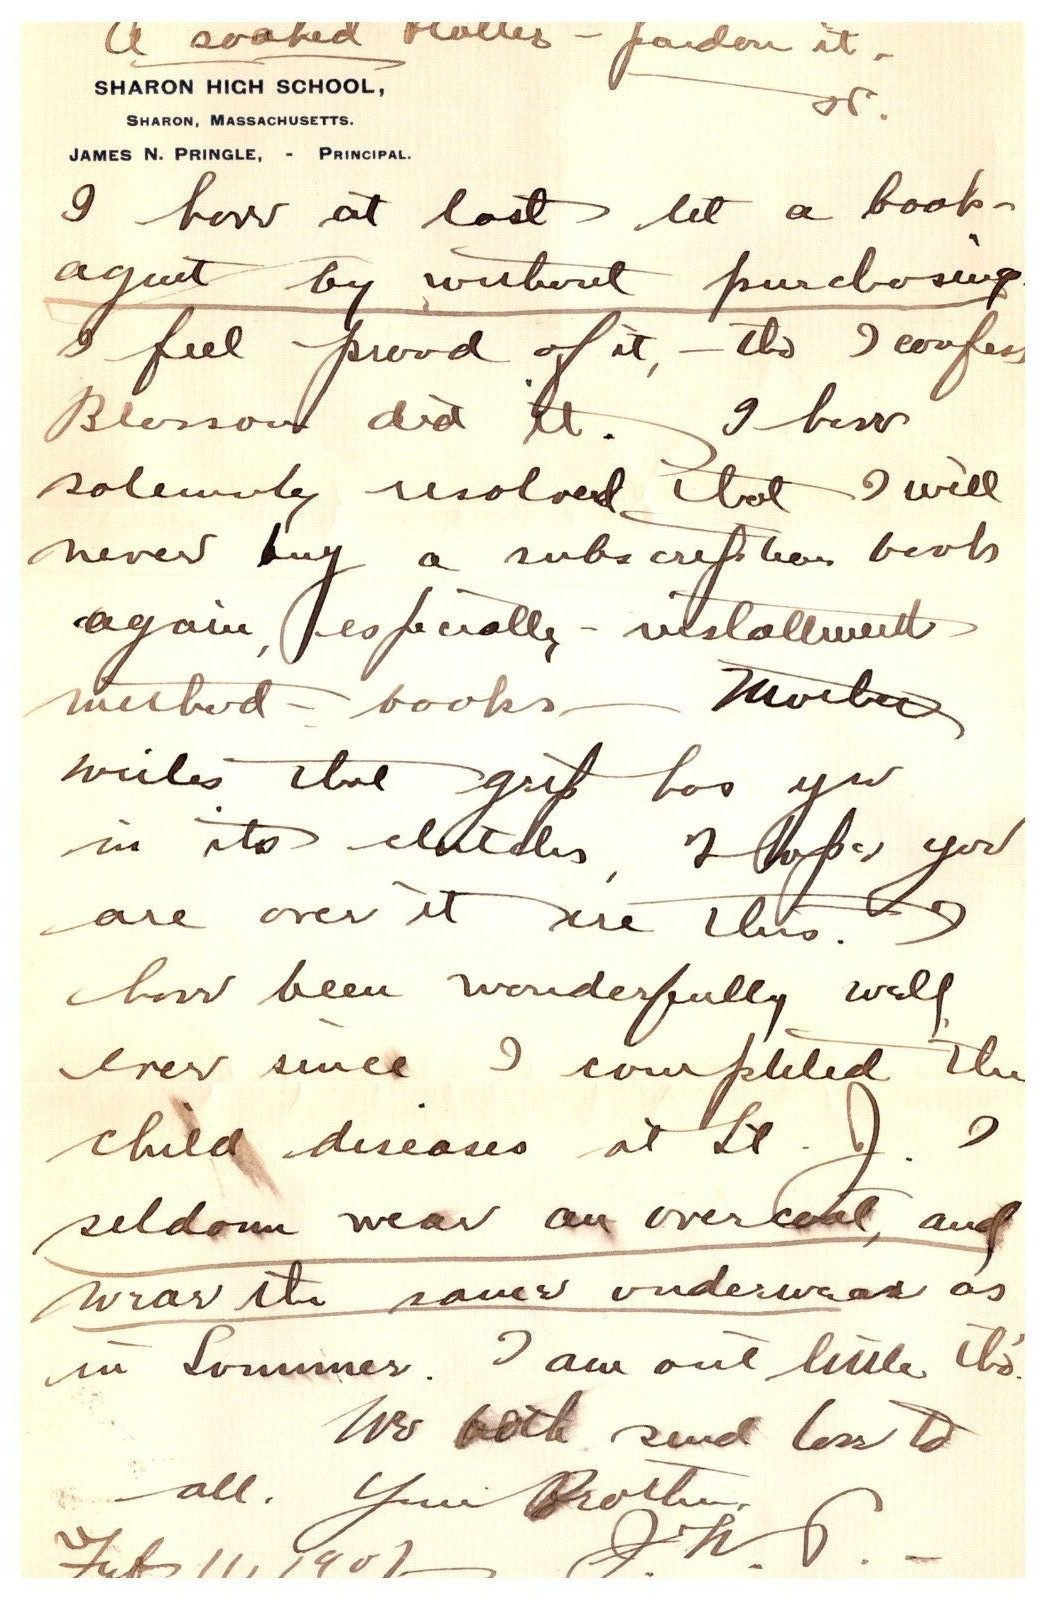 A soaked blotter - pardon it.
SHARON HIGH SCHOOL,
SHARON, MASSACHUSETTS.
JAMES N. PRINGLE, - PRINCIPAL.
I have at last let a book-
agent by without purchasing.
I feel proud of it, - tho I confess
Blossom did it. I have
solemnly resolved that I will
never buy a subscription book
again, especially - installment
method - books - Mother
writes that grip has you
in its clutches, I hope you
are over it ere this. I
have been wonderfully well
ever since I completed the
child diseases at St. J. I
seldom wear an overcoat, and
wear the same underwear as
in Summer. I am out little tho'.
We both send love to
all. Your Brother,
Feb 11, 1907 J. N. P. -